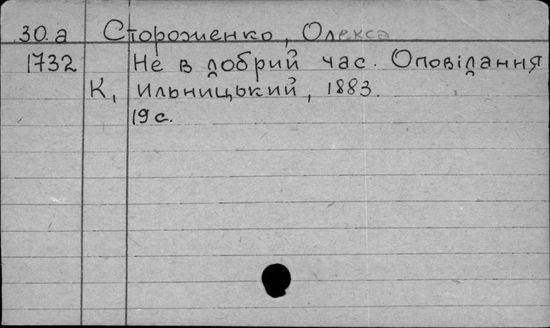 30.а Стороженко, Олекса
1732 Не в добрий час. Оповідання
К, Ильницький, 1883.
19 с.